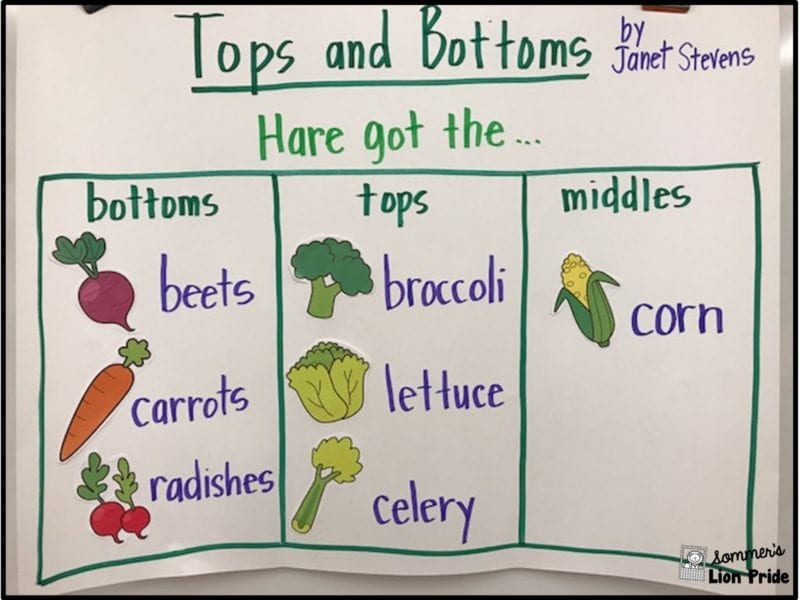 Tops and Bottoms
by
Janet Stevens
Hare got the ...
bottoms
beets
carrots
radishes
tops
broccoli
lettuce
celery
middles
corn
Sommer's
Lion Pride